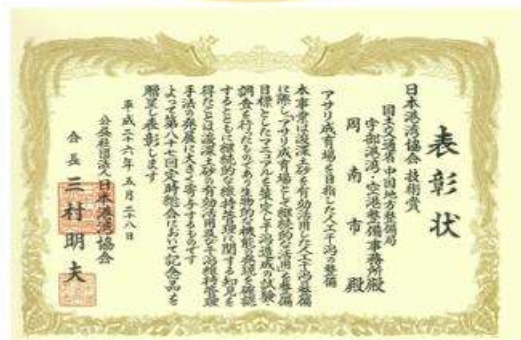 表彰状
日本港湾協会 技術賞
国土交通省中国地方整備局
宇部港湾・空港整備事務所殿
周南市 殿
アサリ成育場を目指した人工干潟の整備
本事業は浚渫土砂を有効活用した人工干潟の整備
に際しアサリ成育場として継続的な活用を
目標としたマニュアルを策定し干潟造成の試験・
調査を行ったものであり生物的な機能の発現を確認
するとともに継続的な維持管理に関する知見を
得たことは浚渫土砂の有効活用及び干潟維持管理
手法の発展に大きく寄与するものです
よって第八十七回定時総会において記念品を
贈呈し表彰します
平成二十六年五月二十八日
公益社団法人日本港湾協会
会長 三村明夫